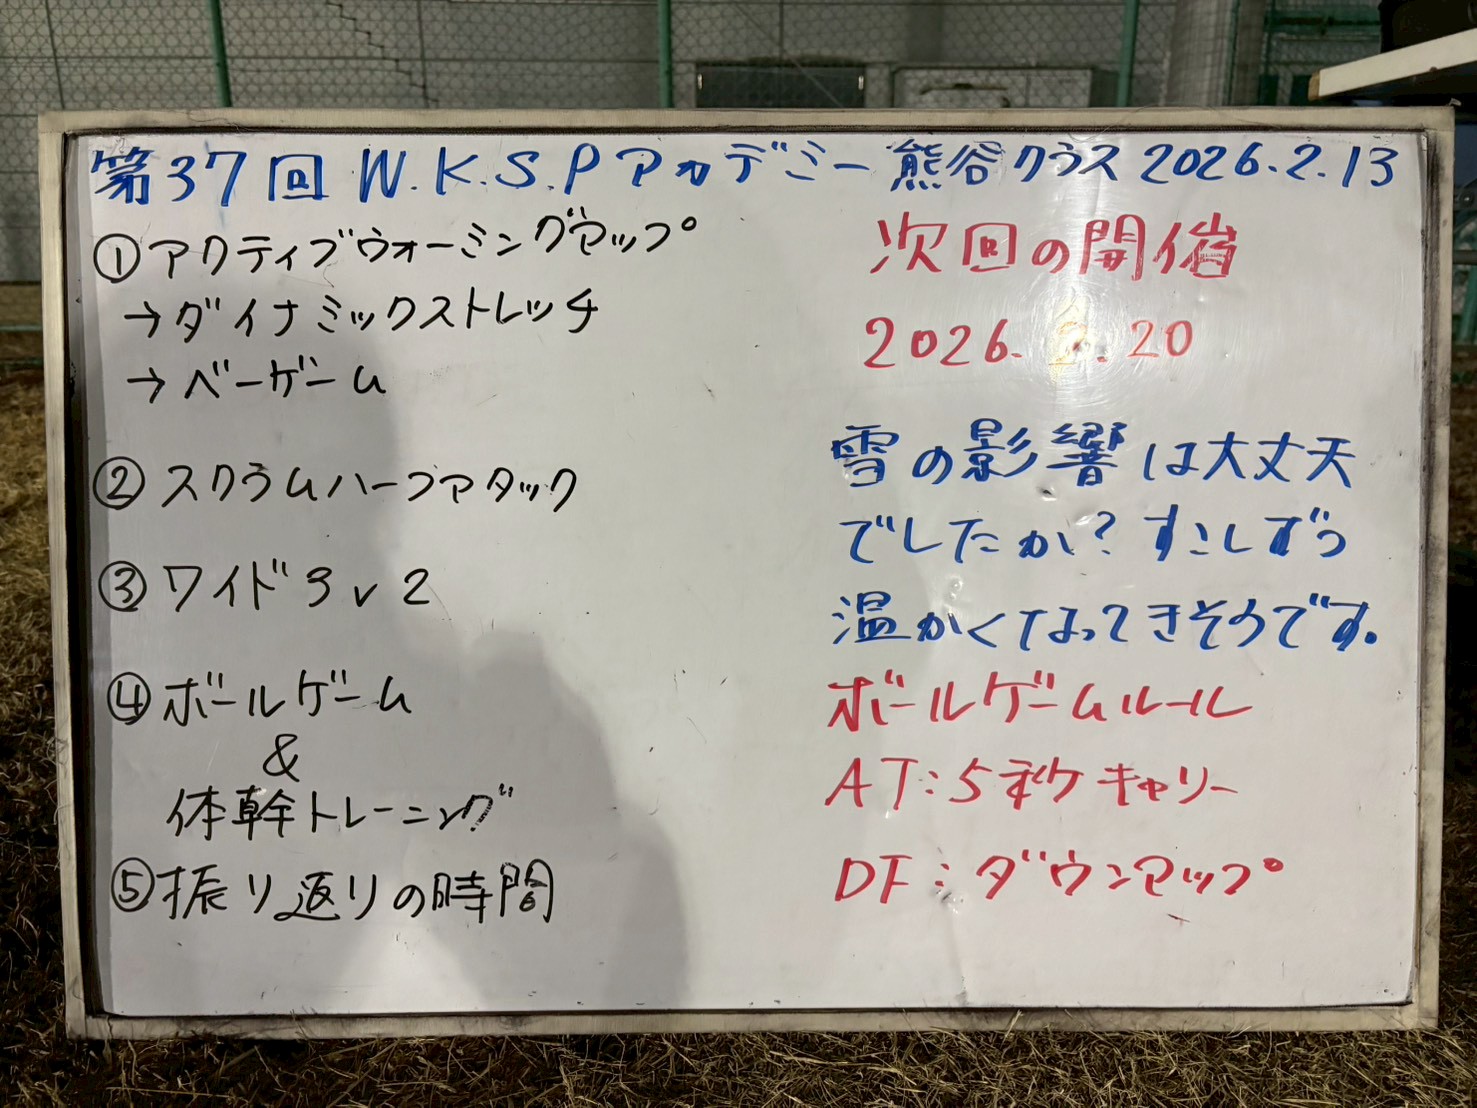 第37回 W.K.S.Pアカデミー 熊谷クラス 2026.2.13
①アクティブウォーミングアップ
→ダイナミックストレッチ
→ベーゲーム
②スクラムハーフアタック
③ワイド3v2
④ボールゲーム
&
体幹トレーニング
⑤振り返りの時間
次回の開催
2026.2.20
雪の影響は大丈夫
でしたか?すこしずつ
温かくなってきそうです。
ボールゲームルール
AT:5秒キャリー
DF:ダウンアップ